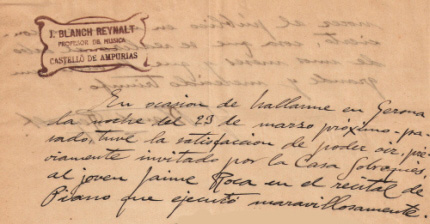 J. BLANCH REYNALT
PROFESOR DE MUSICA
CASTELLÓ DE AMPURIAS
En ocasion de hallarme en Gerona
la noche del 23 de marzo próximo-pa-
sado, tuve la satisfaccion de poder oir, pre-
viamente invitado por la Casa Sobrequés,
al joven Jaime Roca en el recital de
Piano que ejecutó maravillosamente.